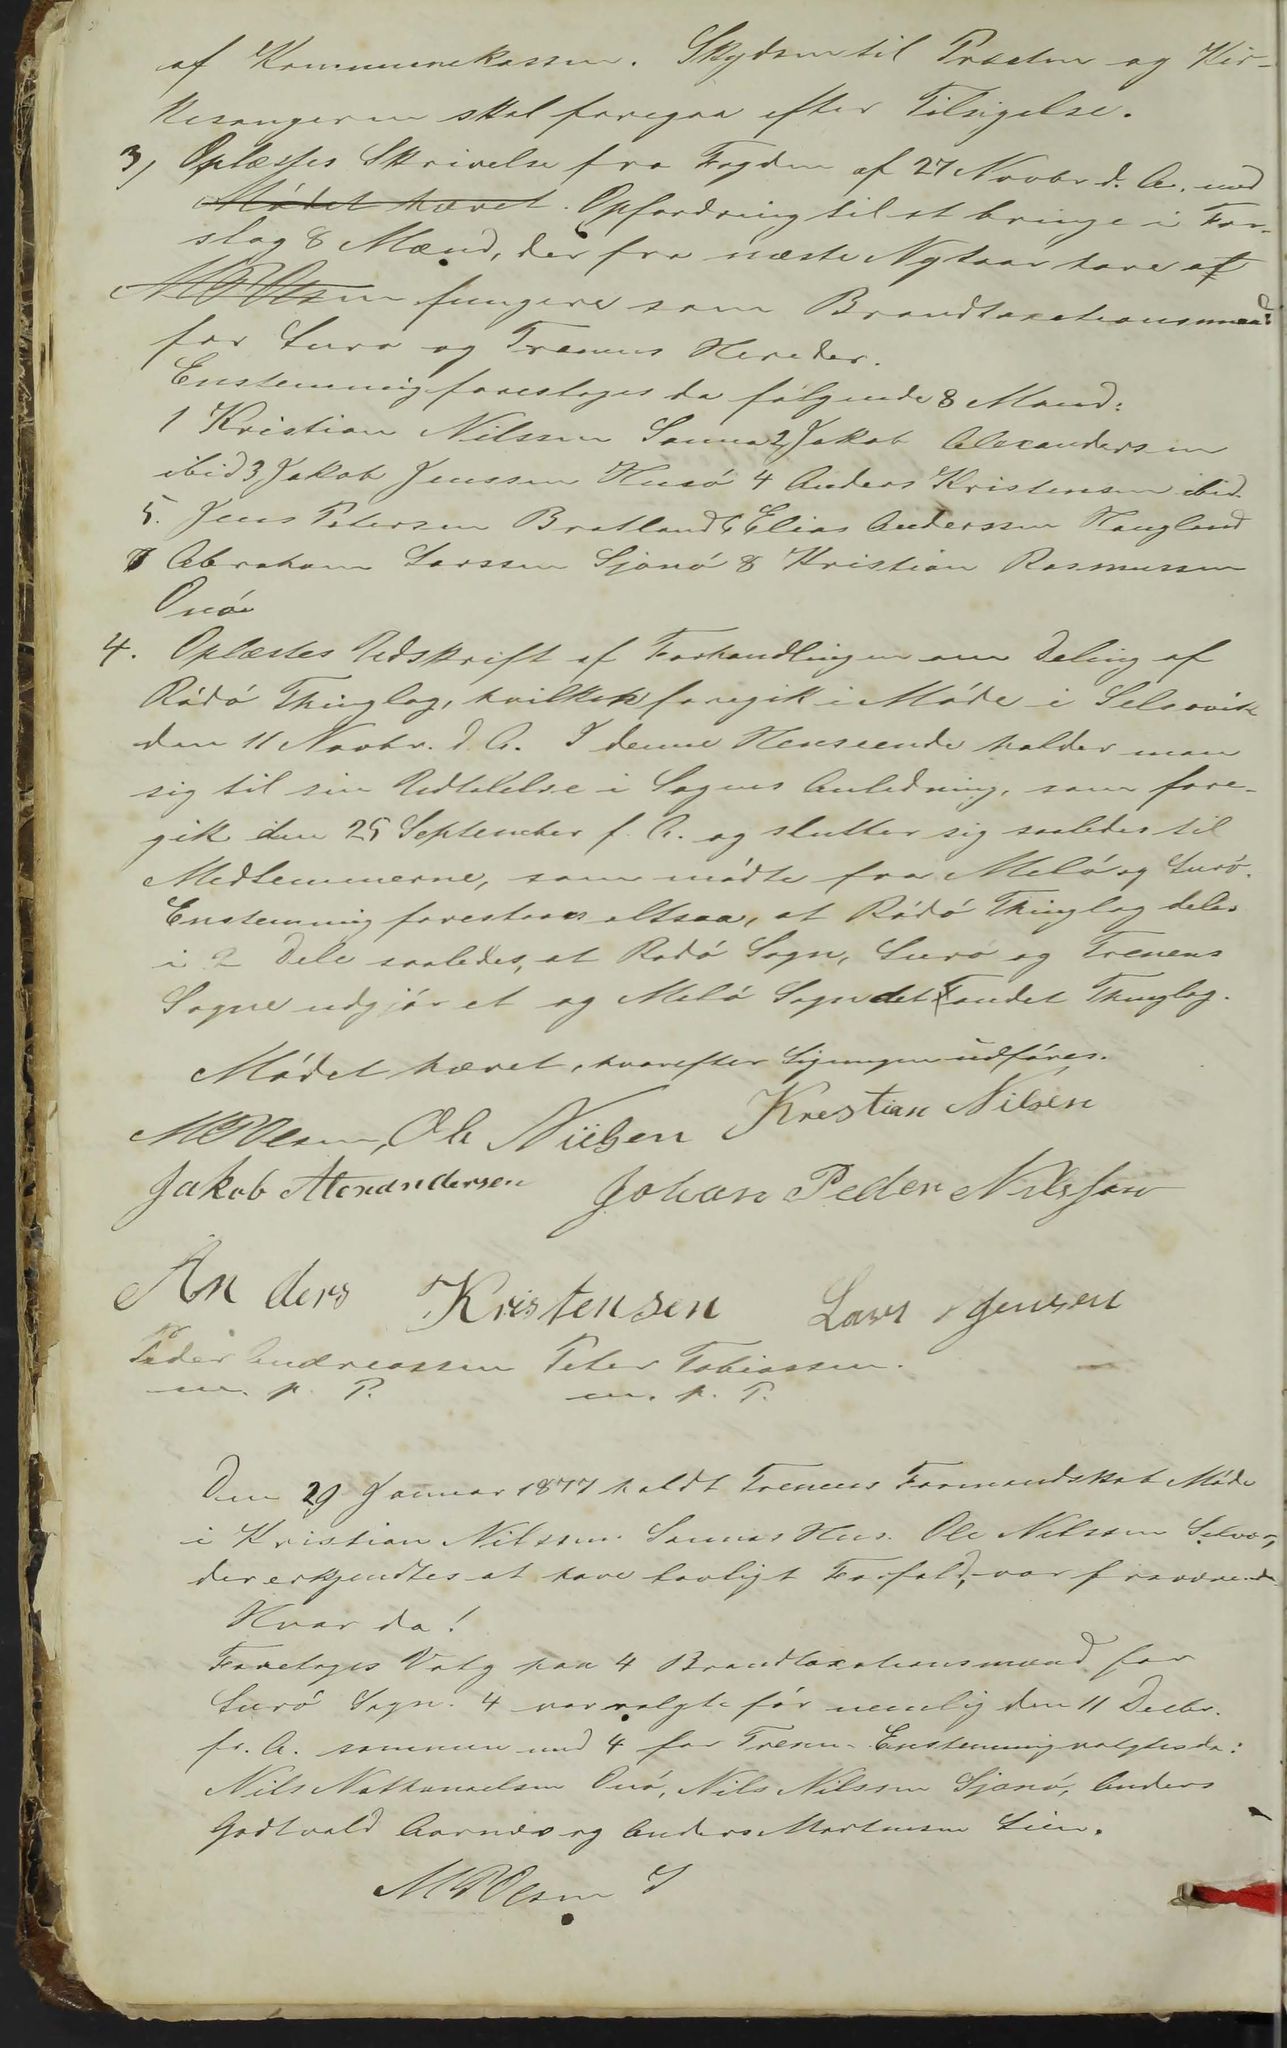 af Kommunekassen. Skydsen til Præsten og Kir-
kesangeren skal foregaa efter Tilsigelse.
3, Oplæstes Skrivelse fra Fogden af 27 Novbr d. A. med
Mødet hævet. Opfordring til at bringe i For-
slag 8 Mænd, der fra næste Nytaar have at
MPOlsen fungere som Brandtaxationsmænd
for Lurø og Trænens Hereder.
Enstemmig foresloges da følgende 8 Mænd:
1 Kristian Nilssen Sanna 2 Jakob Alexandersen
ibid 3 Jakob Jenssen Husø 4 Anders Kristensen ibid.
5. Jens Petersen Bratland 6 Elias Anderssen Haugland
7 Abraham Larssen Sjonø 8 Kristian Rasmussen
Onø
4. Oplæstes Udskrift af Forhandlingen om Deling af
Rødø Thinglag, hvilken foregik i Møde i Selsøvik
den 11 Novbr. d. A. I denne Henseende holder man
sig til sin Udtalelse i Sagens Anledning, som fore-
gik den 25 September f. A. og slutter sig saaledes til
Medlemmerne, som mødte fra Melø og Lurø.
Enstemmig forestaaes altsaa, at Rødø Thinglag deles
i 2 Dele saaledes, at Rødø Sogn, Lurø og Trænens
Sogne udgjør et og Melø Sogn det andet Thinglag.
Mødet hævet, hvorefter Ligningen udføres.
MPOlsen, Ole Nilsen Krestian Nilsen
Jakob Alexandersen Johan Peder Nilsson
Anders Kristensen Lars Jensen
Peder Andreassen Peter Tobiassen.
m. p. P. m. p. P.
Den 29 Januar 1877 holdt Trænens Formandskab Møde
i Kristian Nilssen Sannas Hus. Ole Nilssen Selvær,
der erkjendtes at have lovligt Forfald, var fraværende
Hvor da!
Foretoges Valg paa 4 Brandtaxationsmænd for
Lurø Sogn. 4 var valgte før nemlig den 11 Decbr.
fr. A. sammen med 4 for Træn. Enstemmig valgtes da:
Nils Nathanaelsen Onø, Nils Nilssen Sjonø, Anders
Godtvald Aarnes og Anders Mortensen Lien.
MPOlsen